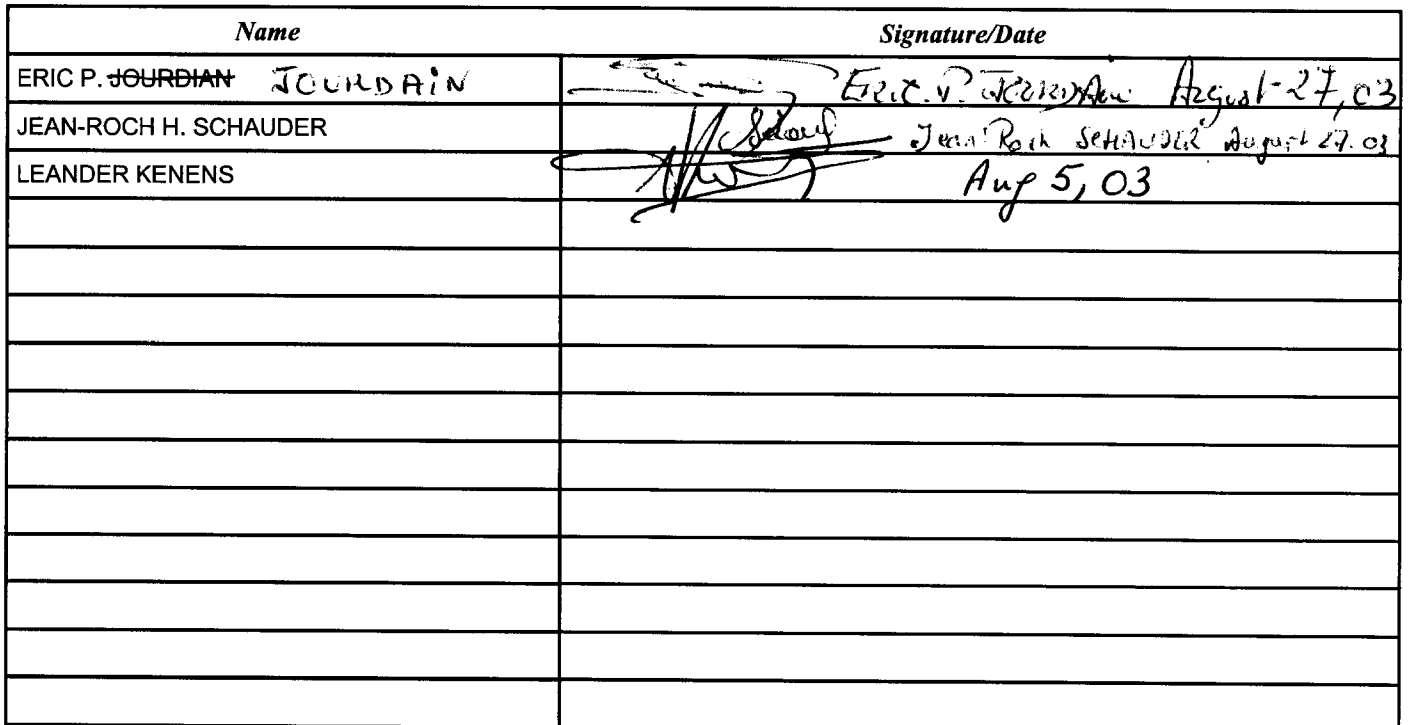 Name Signature/Date
ERIC P. JOURDIAN JOURDAIN ERIC. P. JOURDAIN August 27, 03
JEAN-ROCH H. SCHAUDER Jean Roch SCHAUDER August 27. 03
LEANDER KENENS Aug 5, 03